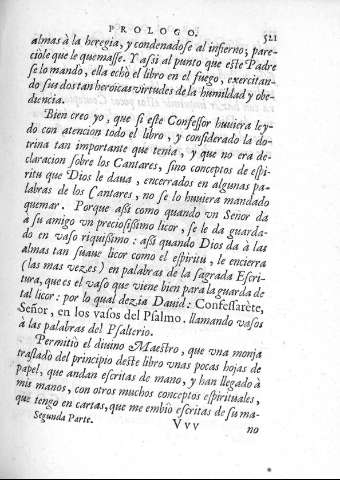 PROLOGO.
521
almas à la heregia, y condenadose al infierno; pare-
ciole que le quemasse. Y assi al punto que este Padre
se lo mandò, ella echò el libro en el fuego, exercitan-
do sus dos tan heroicas virtudes de la humildad y obe-
diencia.
Bien creo yo, que si este Confessor huuiera ley-
do con atencion todo el libro, y considerado la do-
trina tan importante que tenia, y que no era de-
claracion sobre los Cantares, sino conceptos de espi-
ritu que Dios le daua, encerrados en algunas pa-
labras de los Cantares, no se lo huuiera mandado
quemar. Porque assi como quando vn Señor da
à su amigo vn preciosissimo licor, se le da guarda-
do en vaso riquissimo: assi quando Dios da à las
almas tan suaue licor como el espiritu, le encierra
(las mas vezes) en palabras de la sagrada Escri-
tura, que es el vaso que viene bien para la guarda de
tal licor: por lo qual dezia Dauid: Confessarète,
Señor, en los vasos del Psalmo. llamando vasos
à las palabras del Psalterio.
Permitiò el diuino Maestro, que vna monja
trasladò del principio deste libro vnas pocas hojas de
papel, que andan escritas de mano, y han llegado à
mis manos, con otros muchos conceptos espirituales,
que tengo en cartas, que me embiò escritas de su ma-
Segunda Parte.
Vvv
no